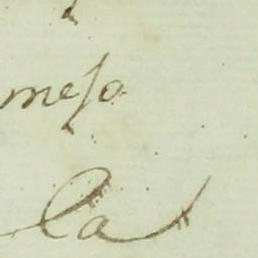 meſo
la